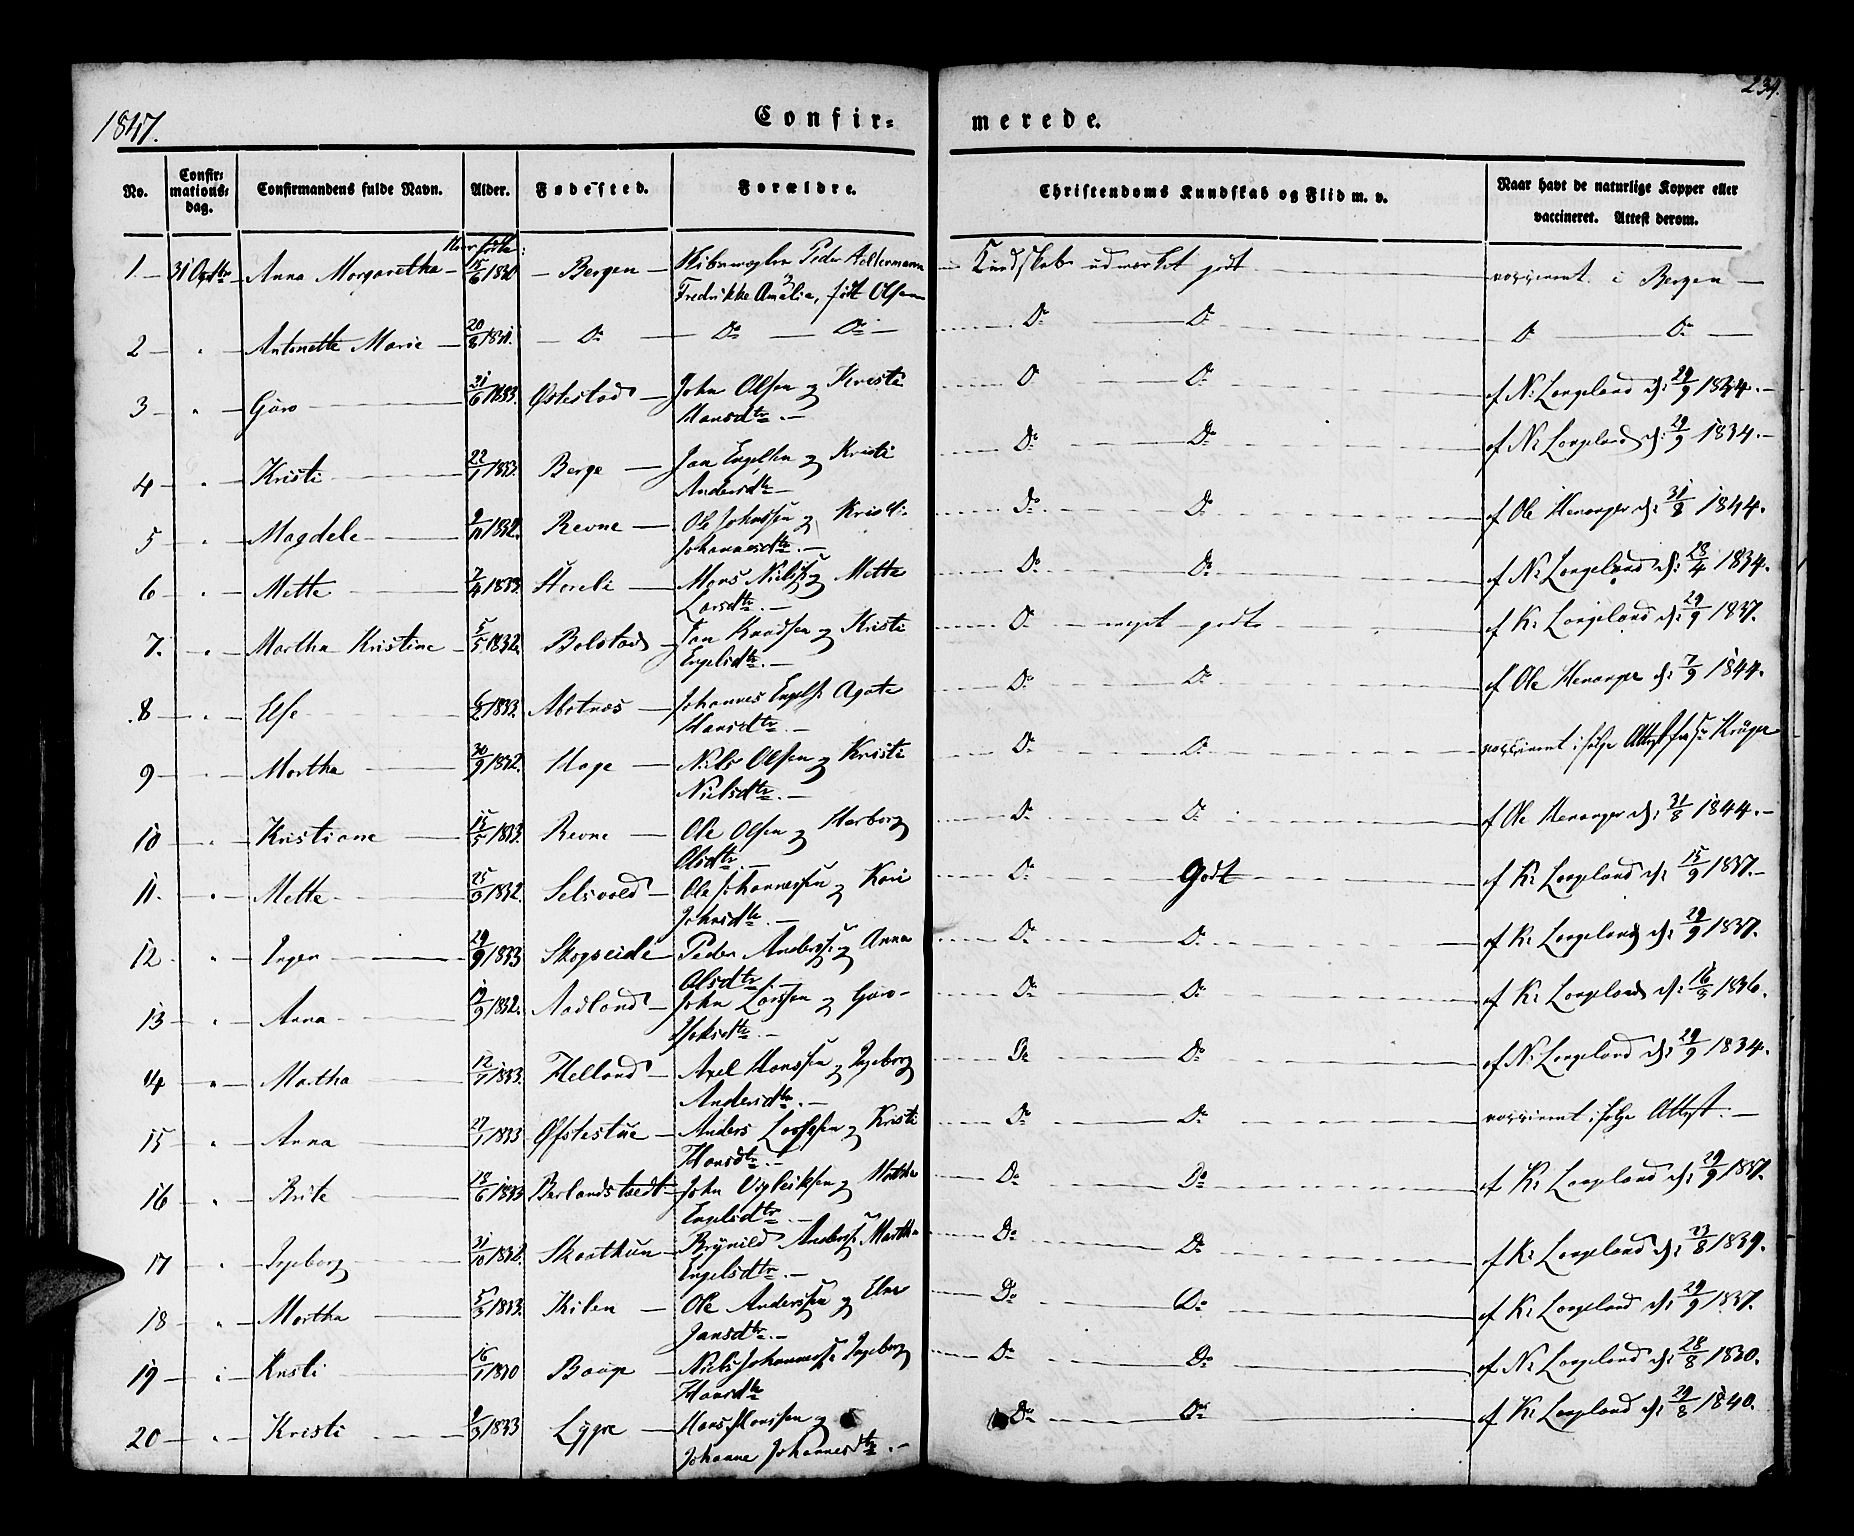 1847.
Confir-
merede.
239.
No.
Confir-
mations-
dag.
Confirmandens fulde Navn.
Alder.
Fødested.
Forældre.
Christendoms Kundskab og Flid m. v.
Naar havt de naturlige Kopper eller
vaccineret. Attest derom.
1 31 Anna Margaretha 15/6 Bergen Peder
Fredrikke Amalia, født Olsen
Kundskab udmærket godt
vaccineret i Bergen
2 " Antonette Marie 20/8 1831 Do Do Do Do Do D Do
3 " Guro 21/6 1833. Østestad John Olsen og Kristi
Hansdtr. D Do af N: Langeland d: 29/9 1834.
4 " Kristi 22/1 1833. Berge Jan Engelsen og Kristi
Andersdtr Do Do af N: Langeland d: 29/9 1834.
5 " Magdele 9/11 1832. Revne Ole Johnssen og Kristi
Johannesdtr. Do Do af Ole Henanger d: 31/8 1844.
6 " Mette 7/4 1833. Hereli Mons Nielss. og Mette
Larsdtr. Do Do af N: Langeland d: 28/4 1834.
7. " Martha Kristine 5/5 1832. Bolstad Jan Knudsen og Kristi
Engelsdtr. Do meget godt af K: Langeland d: 29/9 1837.
8 " Else 1833. Johannes Engelss. Agate
Hansdtr. Do Do af Ole Henanger d: 7/9 1844.
9 " Martha 30/9 1832. Hage Niels Olsen og Kristi
Nielsdtr. Do Do vaccineret ifølge Attest Krüger
10 " Kristiane 15/5 1833. Revne Ole Olsen og Herborg
Olsdtr. Do Do af Ole Henanger d: 31/8 1844.
11. " Mette 25/9 1832. Selsvold Ole Johannessen og Kari
Johnsdtr. Do Godt af K: Langeland d: 15/9 1837.
12 " Inger 29/9 1833 Skogseide Peder Anderss. og Anna
Olsdtr. Do Do af K: Langeland d: 29/9 1837.
13 " Anna 19/9 1832. Aadland John Larssen og Guro
Do Do af K: Langeland d: 16/9 1836.
14 " Martha 12/1 1833. Helland Axel Hanssen og Ingeborg
Andersdtr. Do Do af N: Langeland d: 29/9 1834.
15 " Anna 27/1 1833 Øfstestue Anders Larssen og Kristi
Hansdtr. Do Do vaccineret ifølge Attest.
16 " Brite 28/6 1833 Berlandstvedt John Vigleiksen og Martha
Engelsdtr. Do Do af K: Langeland d: 29/9 1837.
17 " Ingeborg 31/10 1832. Skaathun Brynild Anderss. Martha
Engelsdtr. Do Do af K: Langeland d: 23/8 1839.
18 " Martha 5/3 1833. Kilen Ole Anderssen og
Jansdtr. Do Do af K: Langeland d: 29/9 1837.
19 " Kristi 16/1 1830 Baage Niels Johanness. Ingeborg
Hansdtr Do Do af N: Langeland d: 28/8 1830.
20 " Kristi 1/3 1833 Lygre Hans Hanssen og
Johanne Johannesdtr. Do Do af K: Langeland d: 29/8 1840.